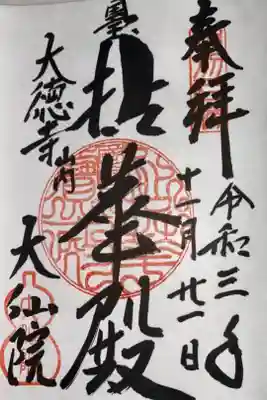 奉拝
令和三年
十一月廿一日
拈華殿
大徳寺山内
大仙院